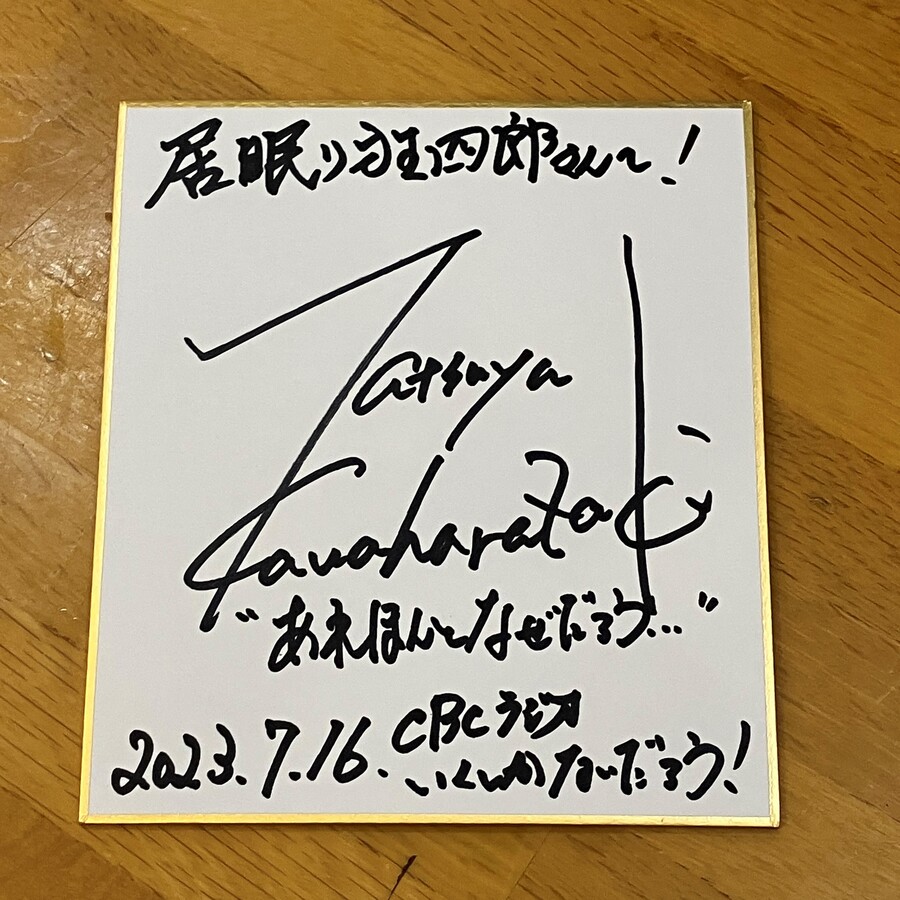 居眠り狂四郎さん〜!
Tatsuya
Kawaharazaki
"あれほんとなぜだろう..."
2023.7.16. CBCラジオ
いくしかないだろう!